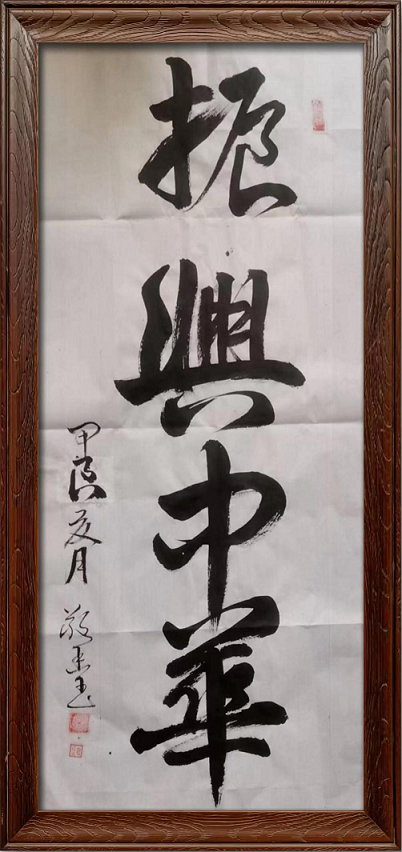 振興中華
甲辰夏月